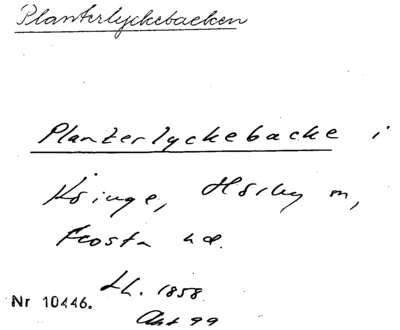 Planterlyckebacken
Planterlyckebacke i
Köinge, Hörby m,
Frosta hd.
Lh. 1858
Nr 10446.
Akt 99